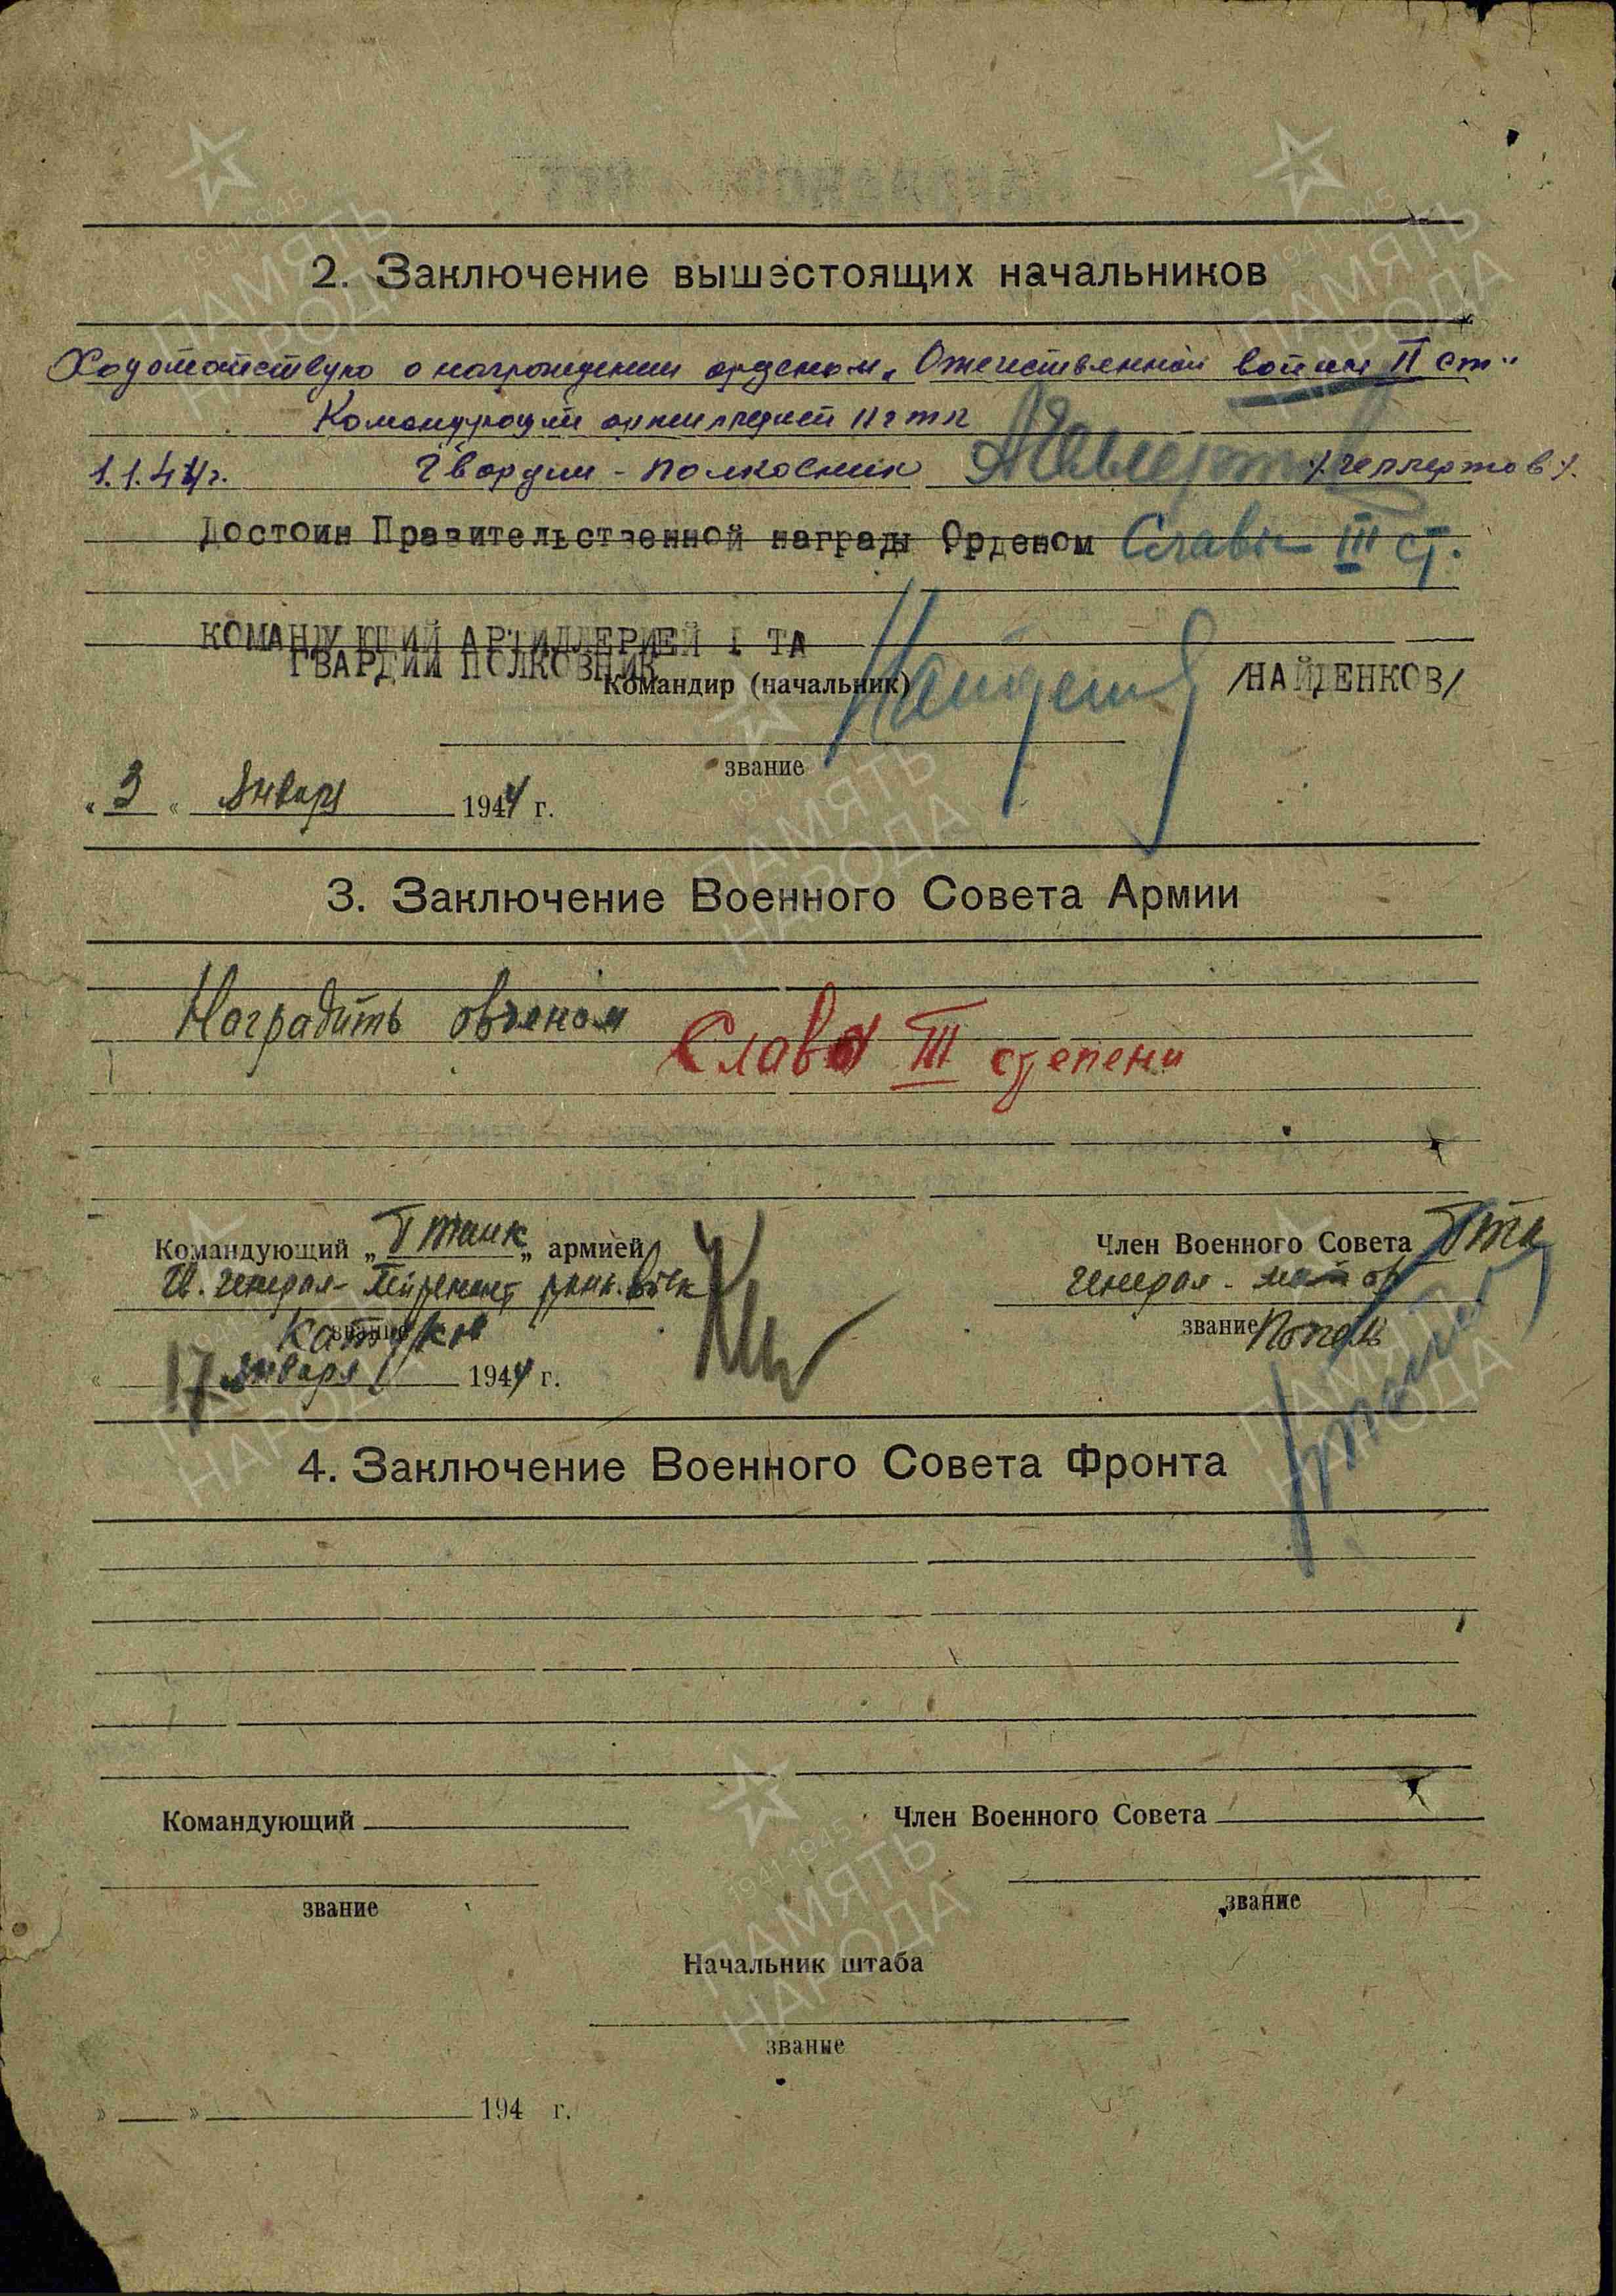 2. Заключение вышестоящих начальников
Ходатайствую о награждении орденом „Отечественной войны II ст"
Командующий артиллерией 11 г тк
1.1.44г. Гвардии - полковник
Достоин Правительственной награды Орденом Славы III ст.
КОМАНДУЮЩИЙ АРТИЛЛЕРИЕЙ 1 ТА
ГВАРДИИ ПОЛКОВНИК
Командир (начальник) /НАЙДЕНКОВ/
звание
„3“ Января 1944 г.
3. Заключение Военного Совета Армии
Наградить орденом Славы III степени
Командующий „1 танк“ армией
Гв. генерал-лейтенант танк. войск
звание
Катуков
17 января 1944 г.
Член Военного Совета 1 ТА
Генерал-майор
звание Попель
4. Заключение Военного Совета Фронта
Командующий
звание
Член Военного Совета
звание
Начальник штаба
звание
» » 194 г.
1941 1945
ПАМЯТЬ
НАРОДА